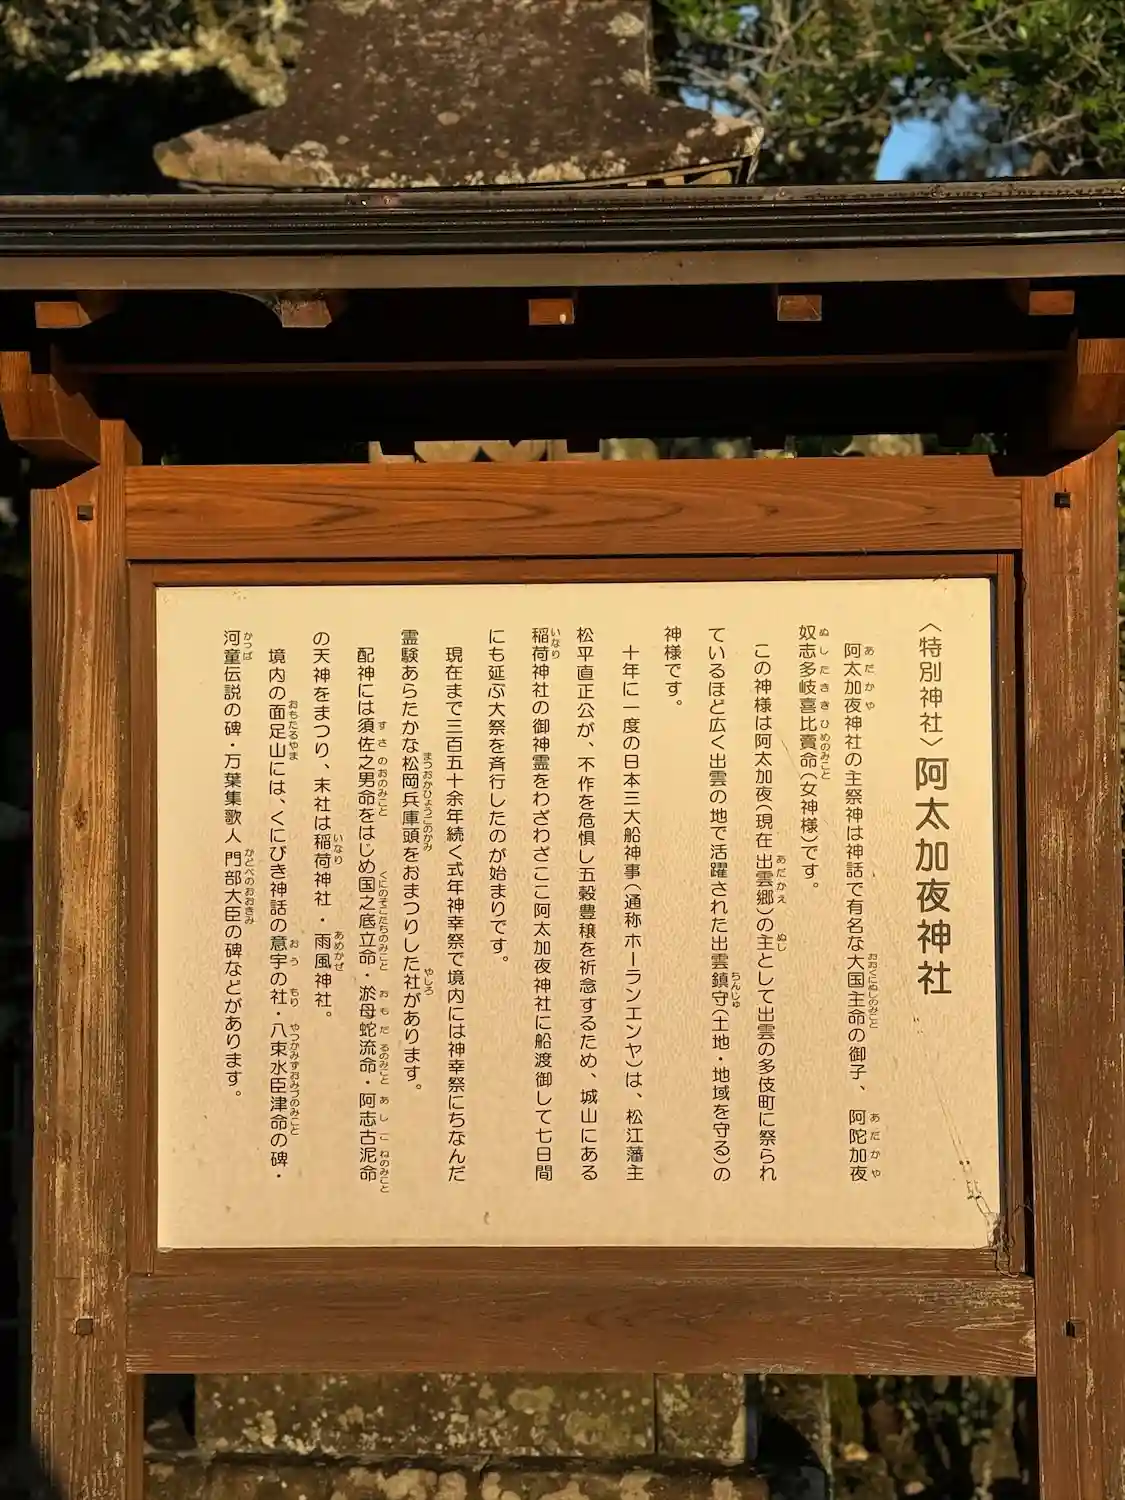 〈特別神社〉阿太加夜神社
阿太加夜神社の主祭神は神話で有名な大国主命の御子、阿陀加夜
奴志多岐喜比賣命(女神様)です。
この神様は阿太加夜(現在 出雲郷)の主として出雲の多伎町に祭られ
ているほど広く出雲の地で活躍された出雲鎮守(土地・地域を守る)の
神様です。
十年に一度の日本三大船神事(通称 ホーランエンヤ)は、松江藩主
松平直正公が、不作を危惧し五穀豊穣を祈念するため、城山にある
稲荷神社の御神霊をわざわざここ阿太加夜神社に船渡御して七日間
にも延ぶ大祭を斉行したのが始まりです。
現在まで三百五十余年続く式年神幸祭で境内には神幸祭にちなんだ
霊験あらたかな松岡兵庫頭をおまつりした社があります。
配神には須佐之男命をはじめ国之底立命・淤母蛇流命・阿志古泥命
の天神をまつり、末社は稲荷神社・雨風神社。
境内の面足山には、くにびき神話の意宇の社・八束水臣津命の碑・
河童伝説の碑・万葉集歌人 門部大臣の碑などがあります。